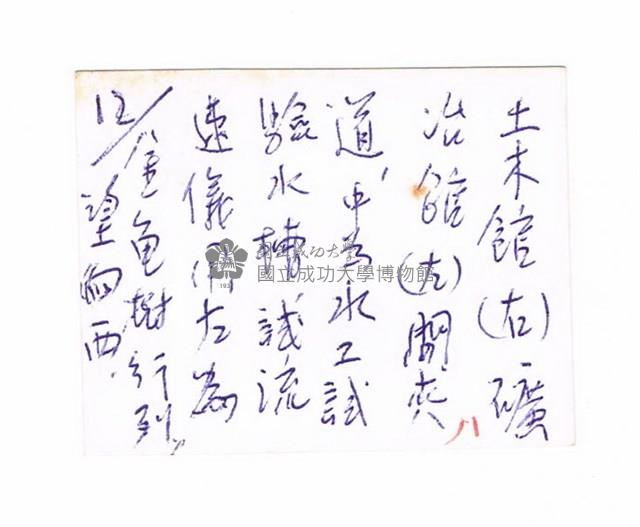 土木館(右)礦
冶館(左)間夾
道，中為水工試
驗水槽試流
速儀用左為
金龜樹行列
望向西
12/
八
國立成功大學
國立成功大學博物館
1931